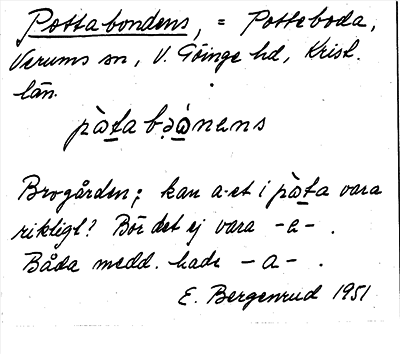 Pottabondens, = Potteboda,
Verums sn, V. Göinge hd, Krist.
län.
pàta bə̣ànens
Brogården; kan a-et i pàta vara
riktigt? Bör det ej vara -a- .
Båda medd. hade -a- .
E. Bergenrud 1951